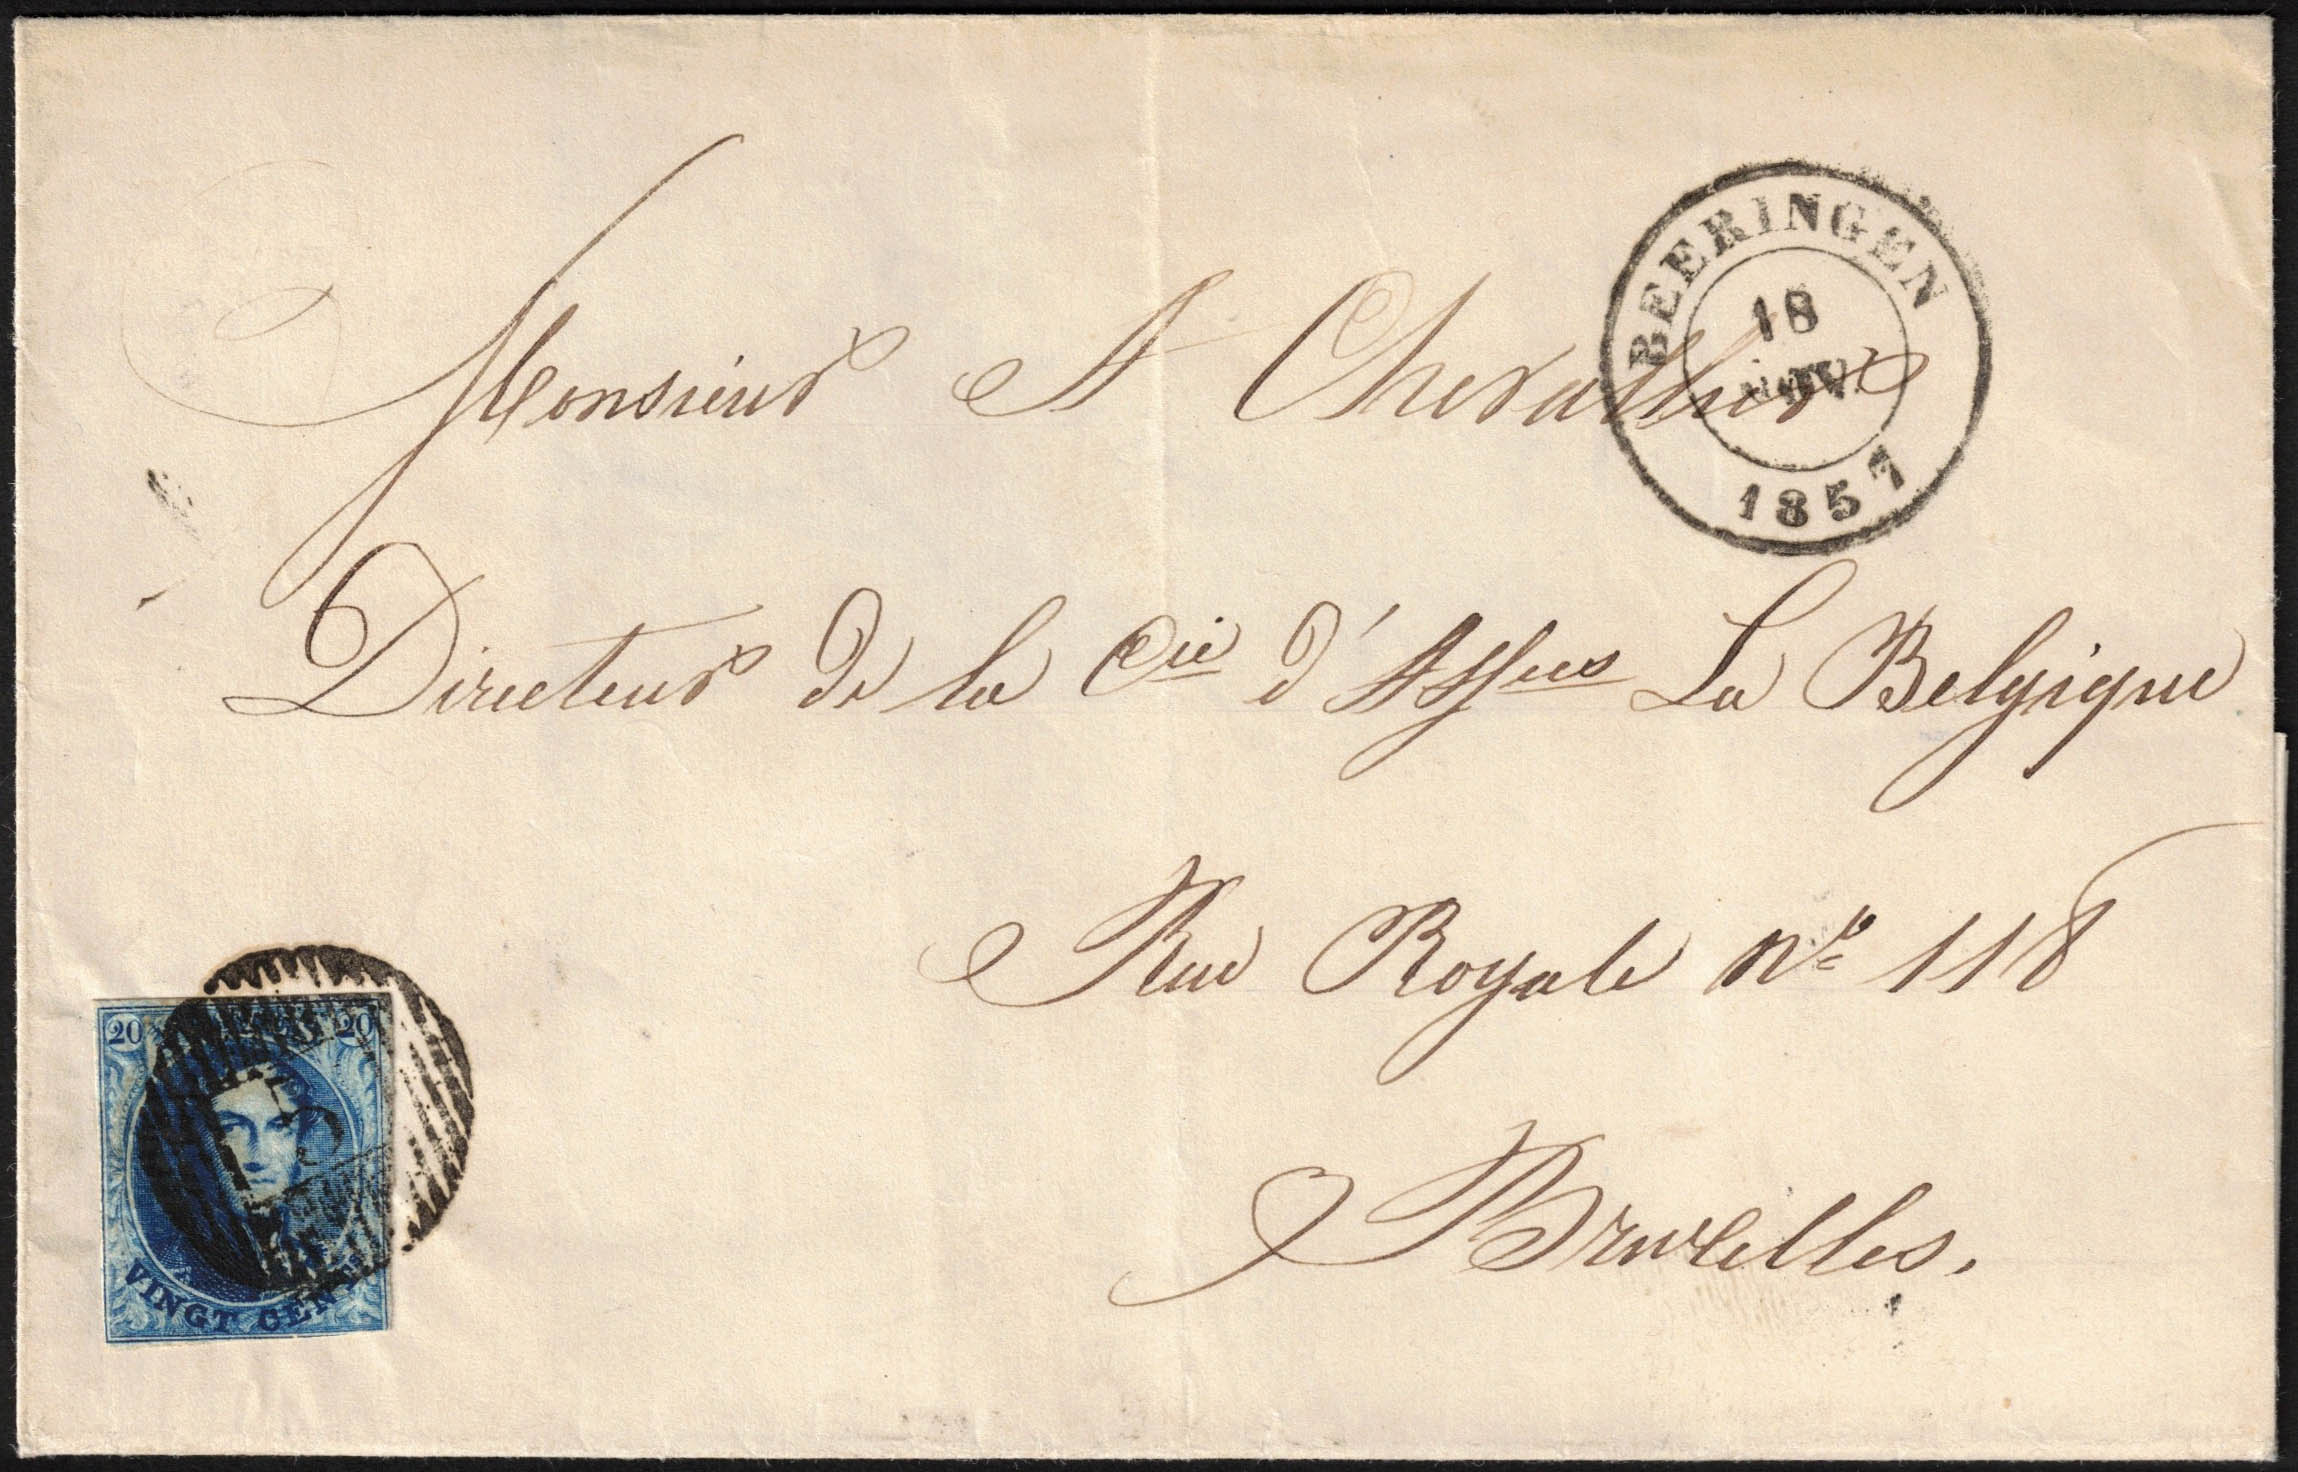 BEERINGEN
18
NOV.
1857
Monsieur A Chevallier
Directeur de la Cie d'Assces La Belgique
Rue Royale No 118
Bruxelles.
20 20
VINGT CENTES